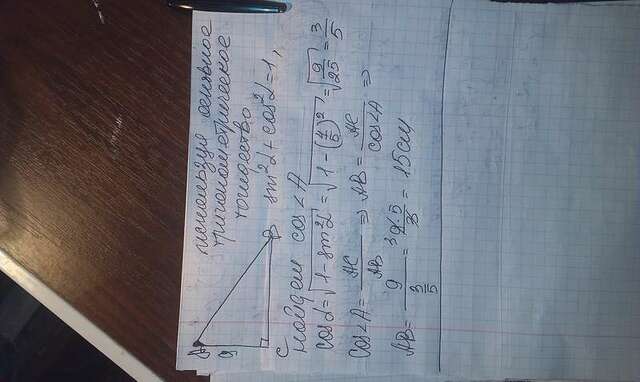 используя основное
тригонометрическое
тождество
sin²α + cos²α = 1,
A
9
C
B
Найдем cos∠A
cosα = √(1 - sin²α) = √(1 - (4/5)²) = √(9/25) = 3/5
cos∠A = AC/AB ⇒ AB = AC/cos∠A ⇒
AB = 9/(3/5) = ³9·5/3 = 15 см